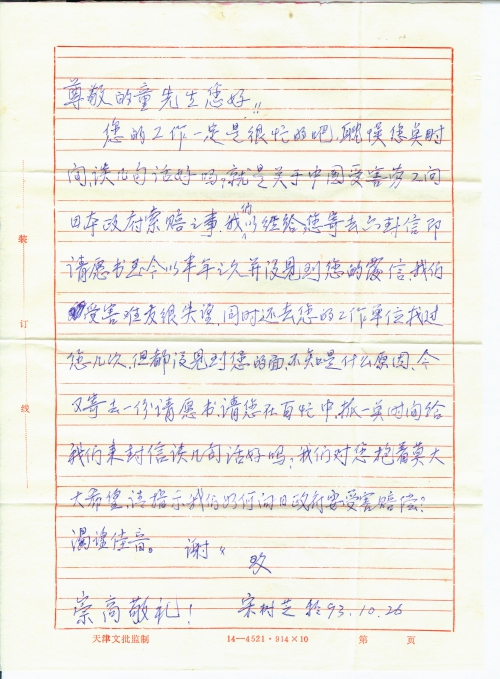 尊敬的童先生您好!!
您的工作一定是很忙的吧,耽误您点时
间,谈几句话好吗;就是关于中国受害劳工向
日本政府索赔之事,我们以经给您寄去六封信即
请愿书至今以半年之久并没见到您的覆信,我们
受害难友很失望,同时还去您的工作单位找过
您几次,但都没见到您的面,不知是什么原因,今
又寄去一份请愿书请您在百忙中抓一点时间给
我们来封信谈几句话好吗;我们对您抱着莫大
大希望,请指示我们如何向日政府要受害赔偿?
渴望佳音。 谢々
致
崇高敬礼! 宋树芝 93.10.26
装
订
线
天津文批监制 14—4521·914×10 第 页